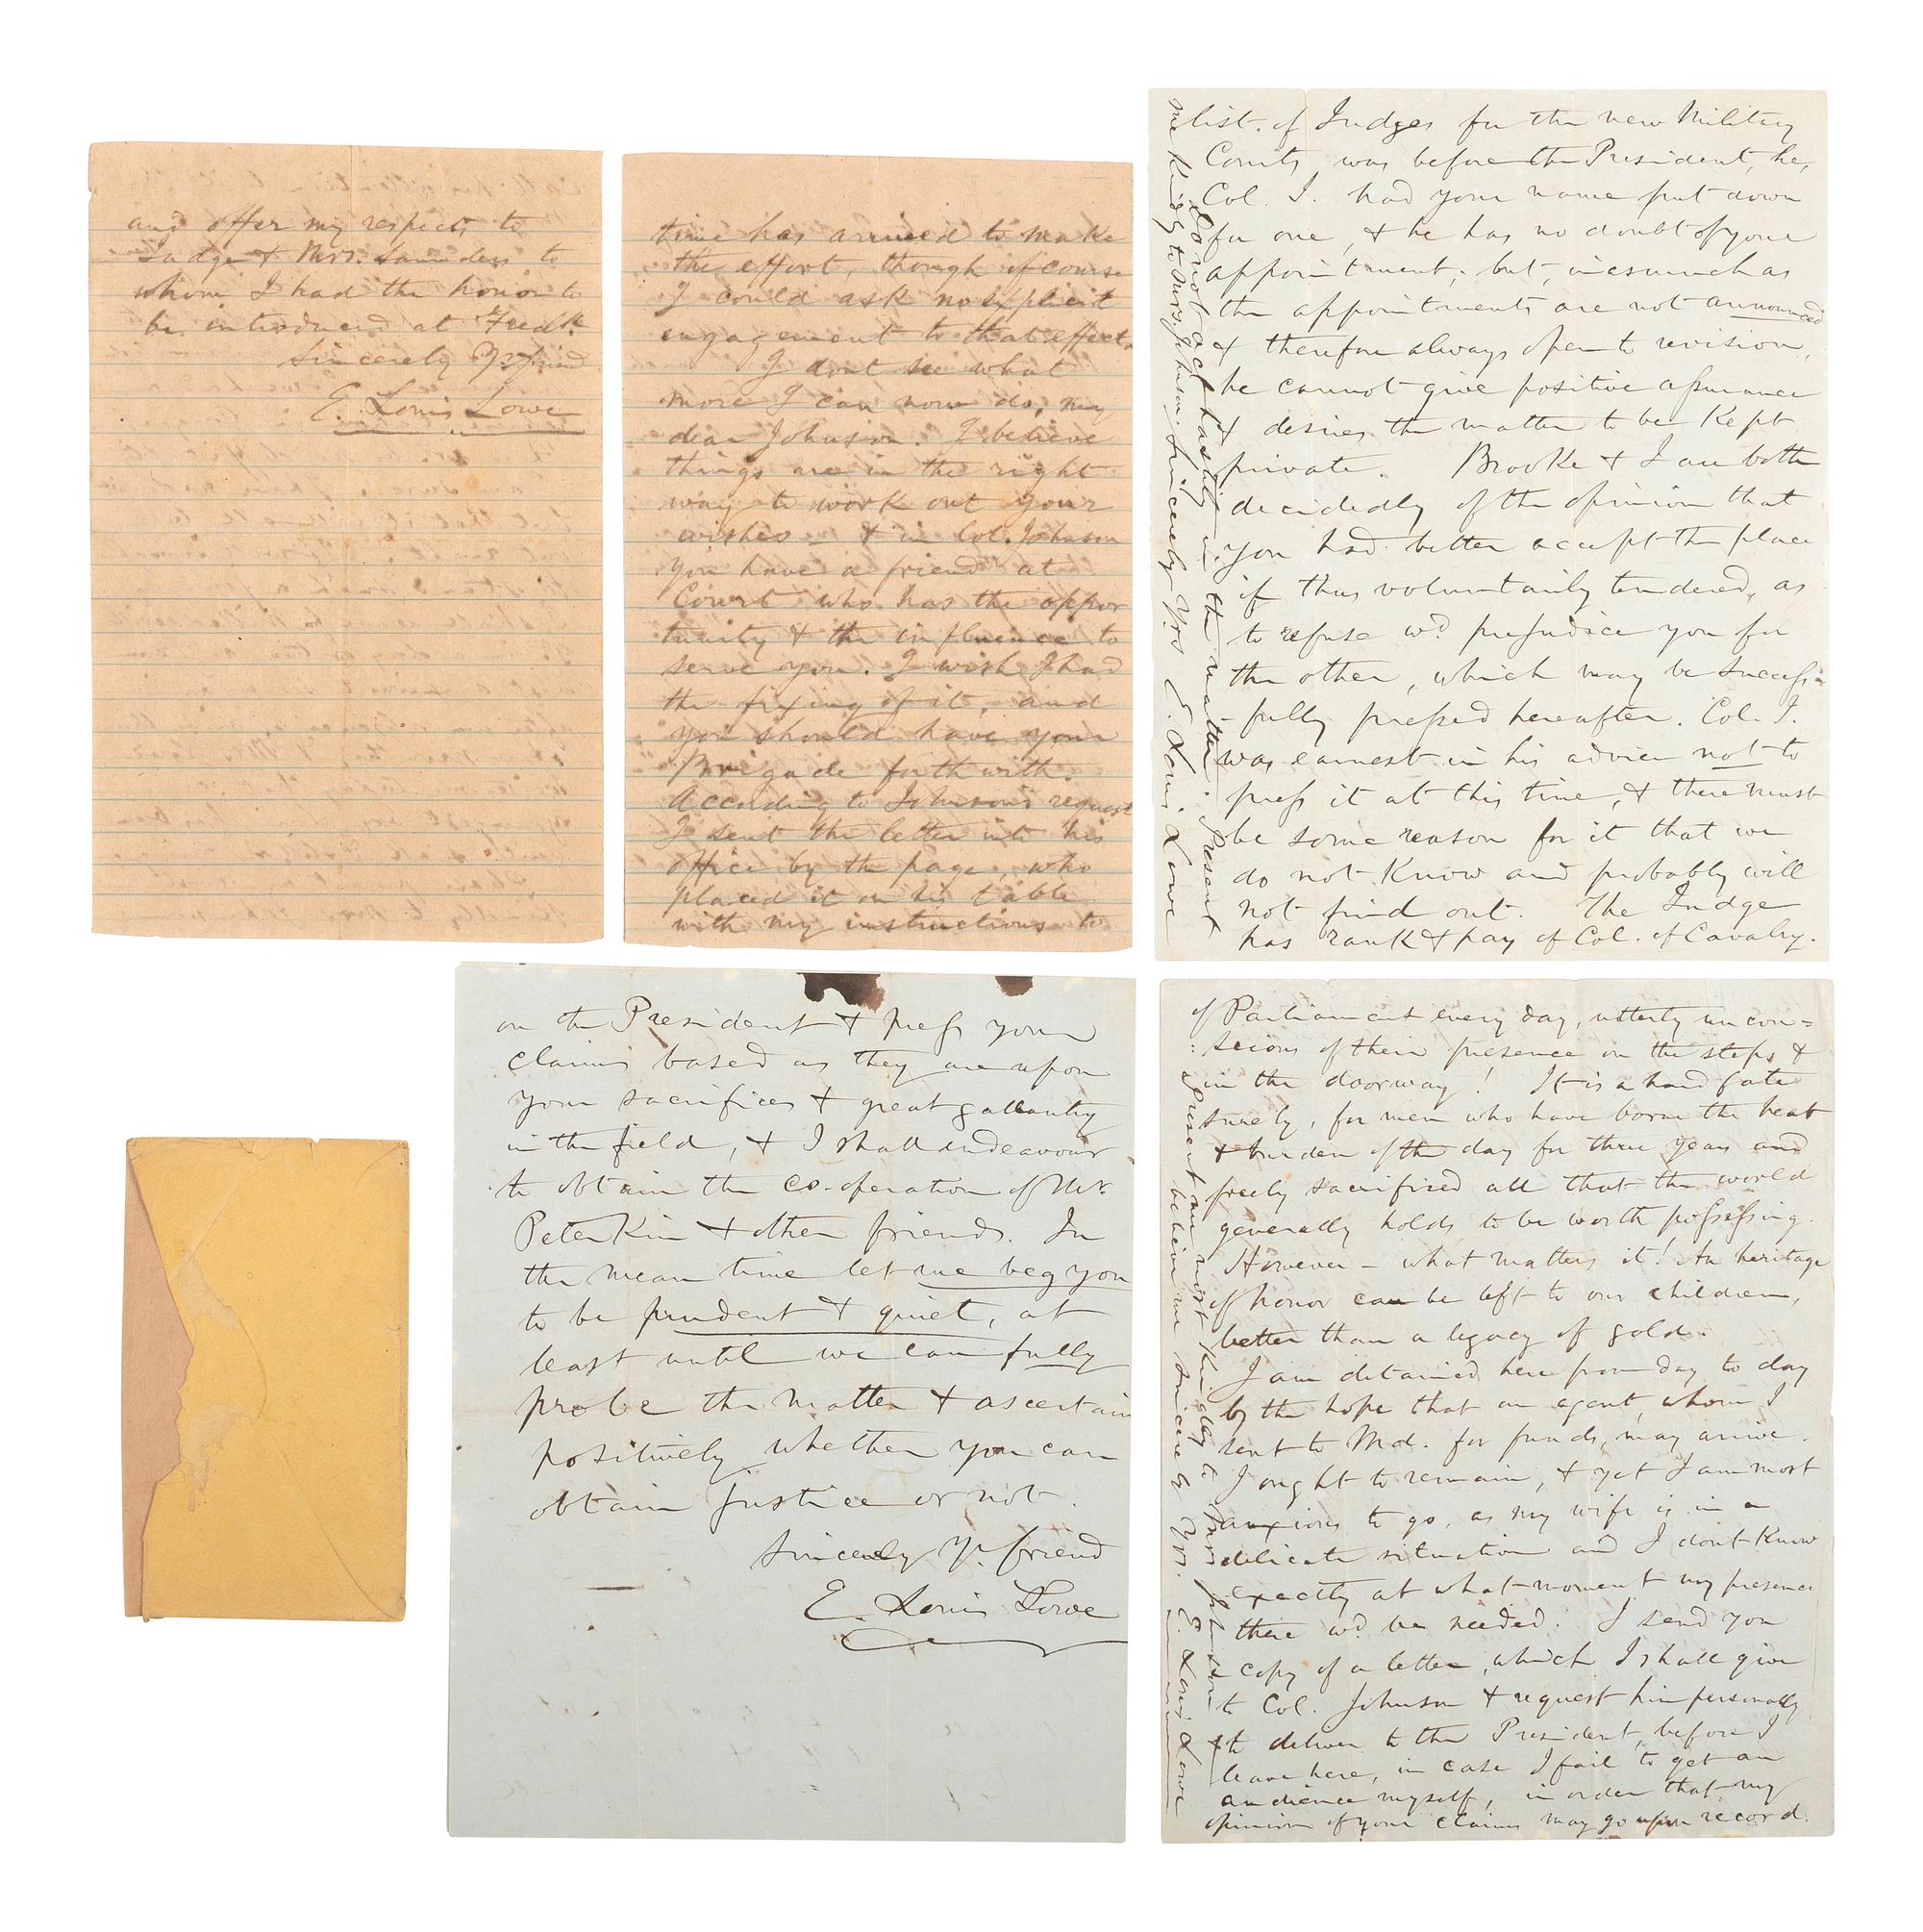 and offer my respects to
Judge & Mrs. Saunders to
whom I had the honor to
be introduced at Fredk.
Sincerely Yr friend
E. Louis Lowe
time has arrived to make
the effort, though of course
I could ask no explicit
engagement to that effect.
I dont see what
more I can now do, my
dear Johnson. I believe
things are in the right
way to work out your
wishes - & in Col. Johnson
you have a friend at
Court who has the oppor
tunity & the influence to
serve you. I wish I had
the fixing of it, and
you should have your
Brigade forthwith.
According to Johnson's request
I sent the letter into his
office by the page, who
placed it on his table
with my instructions to
list of Judges for the new Military
Courts was before the President, he,
Col. J. had your name put down
for one, & he has no doubt of your
appointment; but, inasmuch as
the appointments are not announced
& therefore always open to revision,
he cannot give positive assurance
& desires the matter to be kept
private. Brooke & I are both
decidedly of the opinion that
you had better accept the place
if thus voluntarily tendered, as
to refuse wd. prejudice you for
the other, which may be success-
fully pressed hereafter. Col. J.
was earnest in his advice not to
press it at this time, & there must
be some reason for it that we
do not know and probably will
not find out. The Judge
has rank & pay of Col. of Cavalry.
Do not act hastily in the matter. Present
me kindly to Mrs. Johnson. Sincerely Yrs E. Louis Lowe
on the President & press your
claims based as they are upon
your sacrifices & great gallantry
in the field, & I shall endeavour
to obtain the co-operation of Mr.
Peterkin & other friends. In
the mean time let me beg you
to be prudent & quiet, at
least until we can fully
probe the matter & ascertain
positively whether you can
obtain justice or not.
Sincerely Yr. friend
E. Louis Lowe
of Parliament every day, utterly uncon=
:scious of their presence on the steps &
in the doorway! It is a hard fate
surely, for men who have borne the heat
& burden of the day for three years and
freely sacrificed all that the world
generally holds to be worth possessing.
However - what matters it! An heritage
of honor can be left to our children,
better than a legacy of gold.
I am detained here from day to day
by the hope that an agent, whom I
sent to Md. for funds, may arrive.
I ought to remain, & yet I am most
anxious to go, as my wife is in a
delicate situation and I dont know
exactly at what moment my presence
there wd. be needed. I send you
copy of a letter, which I shall give
to Col. Johnson & request him personally
to deliver to the President, before I
leave here, in case I fail to get an
audience myself, in order that my
opinion of your claims may go upon record.
Present me most kindly to Mrs Johnson &
believe me Sincerely Yrs. E. Louis Lowe